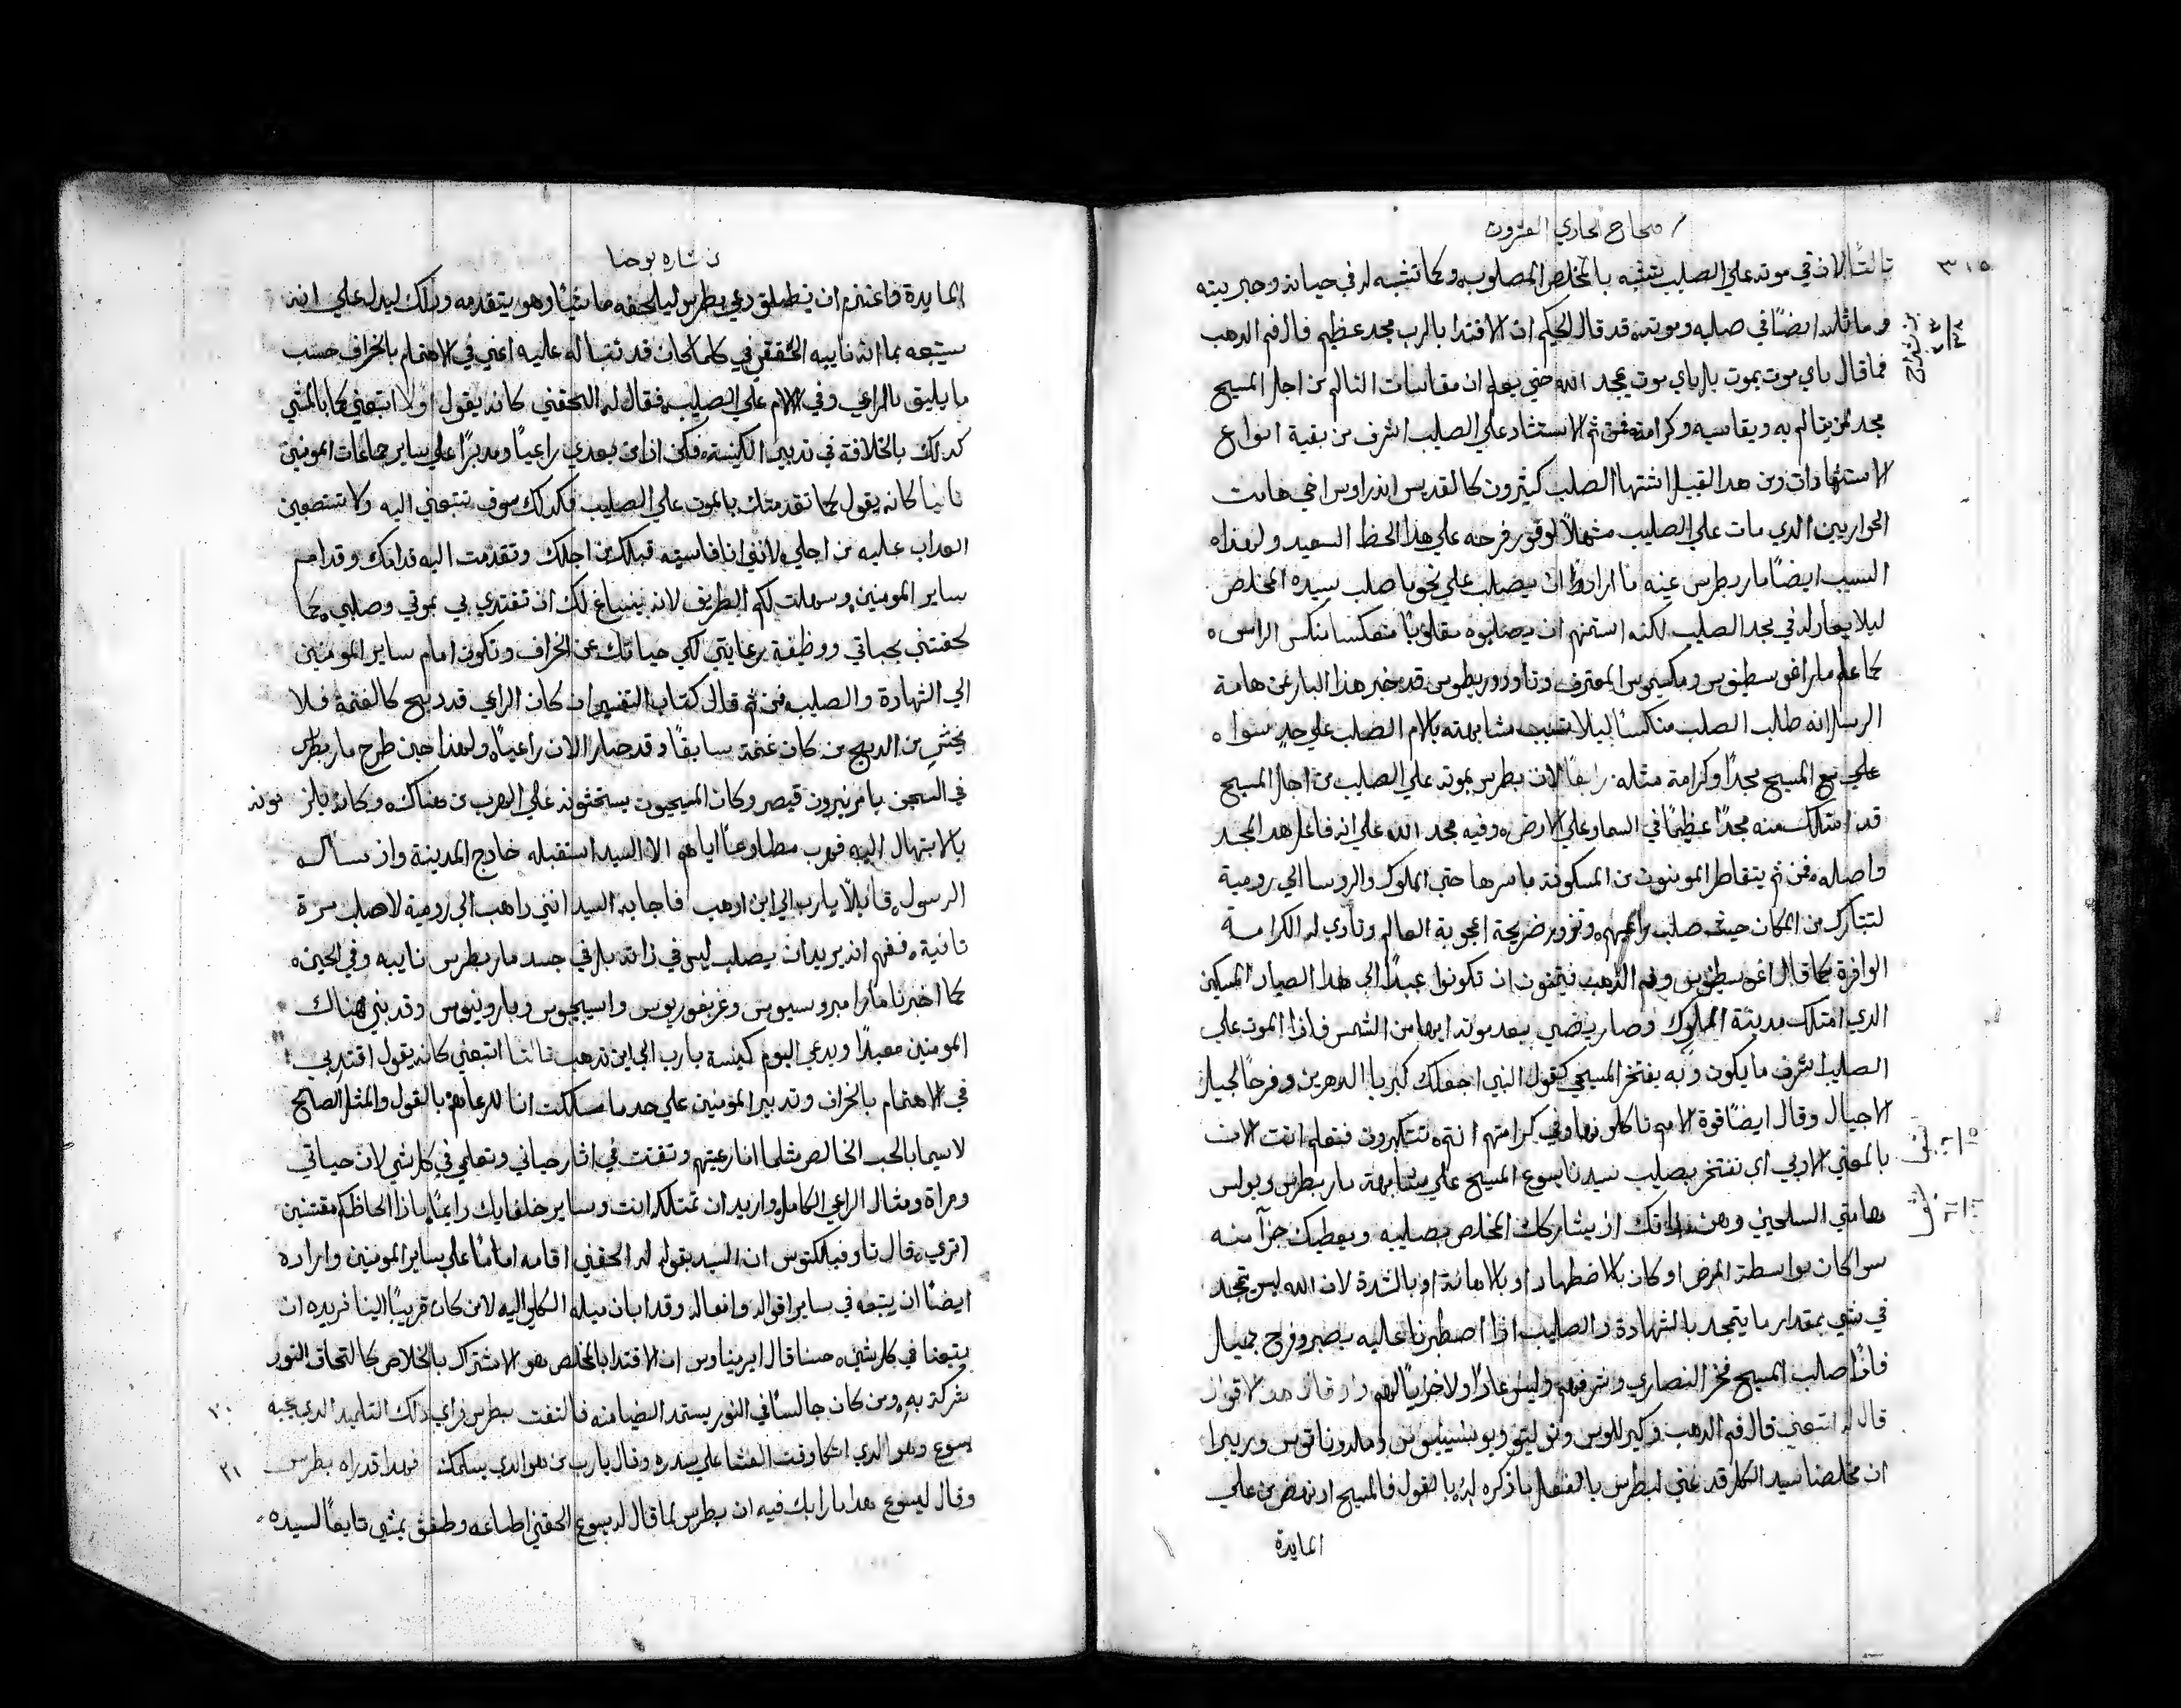 صحاح الحادي العشرون
٣١٥
ثالثًا لان في موته علي الصليب تشبه بالمخلص المصلوب وكما تشبه له في حياته وحبريته
هو ماثله ايضًا في صلبه وموته قد قال الحكيم ان الاقتدا بالرب مجد عظيم قال فم الدهب
فما قال باي موت يموت بل باي موت يمجد الله حتي يعلم ان مقاسات التالم من اجل المسيح
مجد لمن يتالم به ويقاسيه وكرامة فمن ثم الاستشهاد علي الصليب اشرف من بقية انواع
الاستشهادات ومن هدا القبيل اشتها الصلب كثيرون كالقديس اندراوس اخي هامت
الحواريين الدي مات علي الصليب متهللاً لوفور فرحه علي هدا الحظ السعيد ولهذاه
السبب ايضًا مار بطرس عينه ما اراد ان يصلب علي نحو ما صلب سيده المخلص
ليلا يعادله في مجد الصليب لكنه استمنهم ان يصلبوه مقلوبًا منعكسا منكس الراس
كما علم مار اغوسطينوس ومكسيموس المعترف وتاودوريطوس قد خبر هذا البار عن هامة
الرسل انه طلب الصلب منكسًا ليلا تسبب مشابهته بالام الصلب علي حدٍ سواه
علي مع المسيح مجدًا وكرامة مثله رابعًا لان بطرس بموته علي الصليب من اجل المسيح
قد امتلك منه مجدًا عظيمًا في السما وعلي الارض وفيه مجد الله علي انه فاعل هدا المجد
واصله فمن ثم يتقاطر المومنون من المسكونة باسرها حتي الملوك والروسا الي رومية
لتتبارك من المكان حيث صلب راعيهم وتزور ضريحة اعجوبة العالم وتادي له الكرامة
الوافرة كما قال اغوسطينوس وفم الدهب فيتمنون ان تكونوا عبيدًا الي هدا الصياد المسكين
الدي امتلك مدينة الملوك وصار يضي بعد موته ابها من الشمس فاذا الموت علي
الصليب اشرف ما يكون وبه يفتخر المسيحي كقول النبي اجعلك كبريا الدهرين وفرحًا لجيل
الاجيال وقال ايضًا قوة الامم تاكلونها وفي كرامتهم انتم تتكبرون فتعلم انت الان
بالمعني الاولي اي نفتخر بصليب سيدنا يسوع المسيح علي مشابهة مار بطرس وبولس
هامتي السلحيين وهن ذاتك ان يشاركك المخلص بصليبه ويعطيك جزآ منه
سوا كان بواسطة المرض او كان بالاضطهاد او بالاهانة او بالشدة لان الله ليس يتمجد
في شي بمقدار ما يتمجد بالشهادة والصليب اذا اصطبرنا عليه بصبر وفرح جميل
فاذًا صلب المسيح فخر النصاري وشرفهم وليس عارًا ولا خزيًا لهم واذ قال هده الاقوال
قال له اتبعني قال فم الدهب وكيرللوس
ان مخلصنا سيد الكل قد عني لبطرس بالفعل ما ذكره له بالقول فالمسيح اد نهض من علي
المايدة
بشاره يوحنا
المايدة واعتزم ان ينطلق دعي بطرس ليلحقه ماشيًا وهو يتقدمه ودلك ليدله علي انه
سيتبعه بما انه نايبه الحقيقي في كلما كان قد تنبا له عليه اعني في الاهتمام بالخراف حسب
ما يليق بالراعي وفي الالام علي الصليب فقال له الحقني كانه يقول اولاً اتبعني كما بالمشي
كدلك بالخلافة في تدبير الكنيسة فكن اذا من بعدي راعيًا ومدبرًا علي ساير جماعات المومنين
ثانيا كانه يقول كما تقدمتك بالموت علي الصليب فكدلك سوف تتبعني اليه ولا تستصعبن
العداب عليه من اجلي لانني انا قاسيته قبلك من اجلك وتقدمت اليه قدامك وقدام
ساير المومنين وسهلت لكم الطريق لانه ينساغ لك ان تقتدي بي بموتي وصلبي كما
لحقتني بحياتي ووظيفة رعايتي لكي حياتك عن الخراف وتكون امام ساير المومنين
الي الشهادة والصليب فمن ثم قال كتاب التفسير ان كان الراعي قد دبح كالغنمة فلا
يخشي من الدبح من كان غنمة سابقًا وقد صار الان راعيًا ولهذا حين طرح مار بطرس
في السجن بامر نيرون قيصر وكان المسيحيون يستحثونه علي الهرب من هناك وكانوا يلزمونه
بالابتهال اليه فهرب مطاوعًا اياهم الا السيد استقبله خارج المدينة واذ ساله
الرسول قائلاً يارب الي اين ادهب فاجابه السيد انني داهب الي رومية لاصلب مرة
ثانية ففهم انه يريد ان يصلب ليس في ذاته بل في جسد مار بطرس نايبه وفي الحين
كما اخبرنا مار امبروسيوس وغريغوريوس واسيجبوس وبارونيوس وقد بني هناك
المومنين معبدًا ويدعي اليوم كنيسة يارب الي اين تدهب ثالثا اتبعني كانه يقول اقتد بي
في الاهتمام بالخراف وتدبير المومنين علي حد ما سلكت انا لارعاهم بالقول والمثل الصالح
لاسيما بالحب الخالص مثلما انا رعيتهم وتفتت في اثار حياتي وتعلمي في كل شي لان حياتي
ومراة ومثال الراعي الكامل واريد ان تمتلكه انت وساير خلفايك دايمًا
قال تاوفيلكتوس ان السيد بقوله له الحقني اقامه امامًا علي ساير المومنين واراده
ايضًا ان يتبعه في ساير اقواله وافعاله وقد ابان ميله الكلي اليه لان من كان قريبًا الينا نريده ان
يتبعنا في كل شي حسنا قال ايريناوس ان الاقتدا بالمخلص هو الاشتراك بالخلاص كالتحاق النور
شركة به ومن كان جالسًا في النور يستمد الضيا منه فالتفت بطرس فراي دلك التلميد الدي يحبه
٢٠
يسوع وهو الدي اتكا وقت العشا علي صدره وقال يارب من هو الدي يسلمك فهدا قد راه بطرس
٢١
وقال ليسوع هدا يارب فيه ان بطرس لما قال له يسوع الحقني اطاعه وطفق يمشي تابعًا لسيده